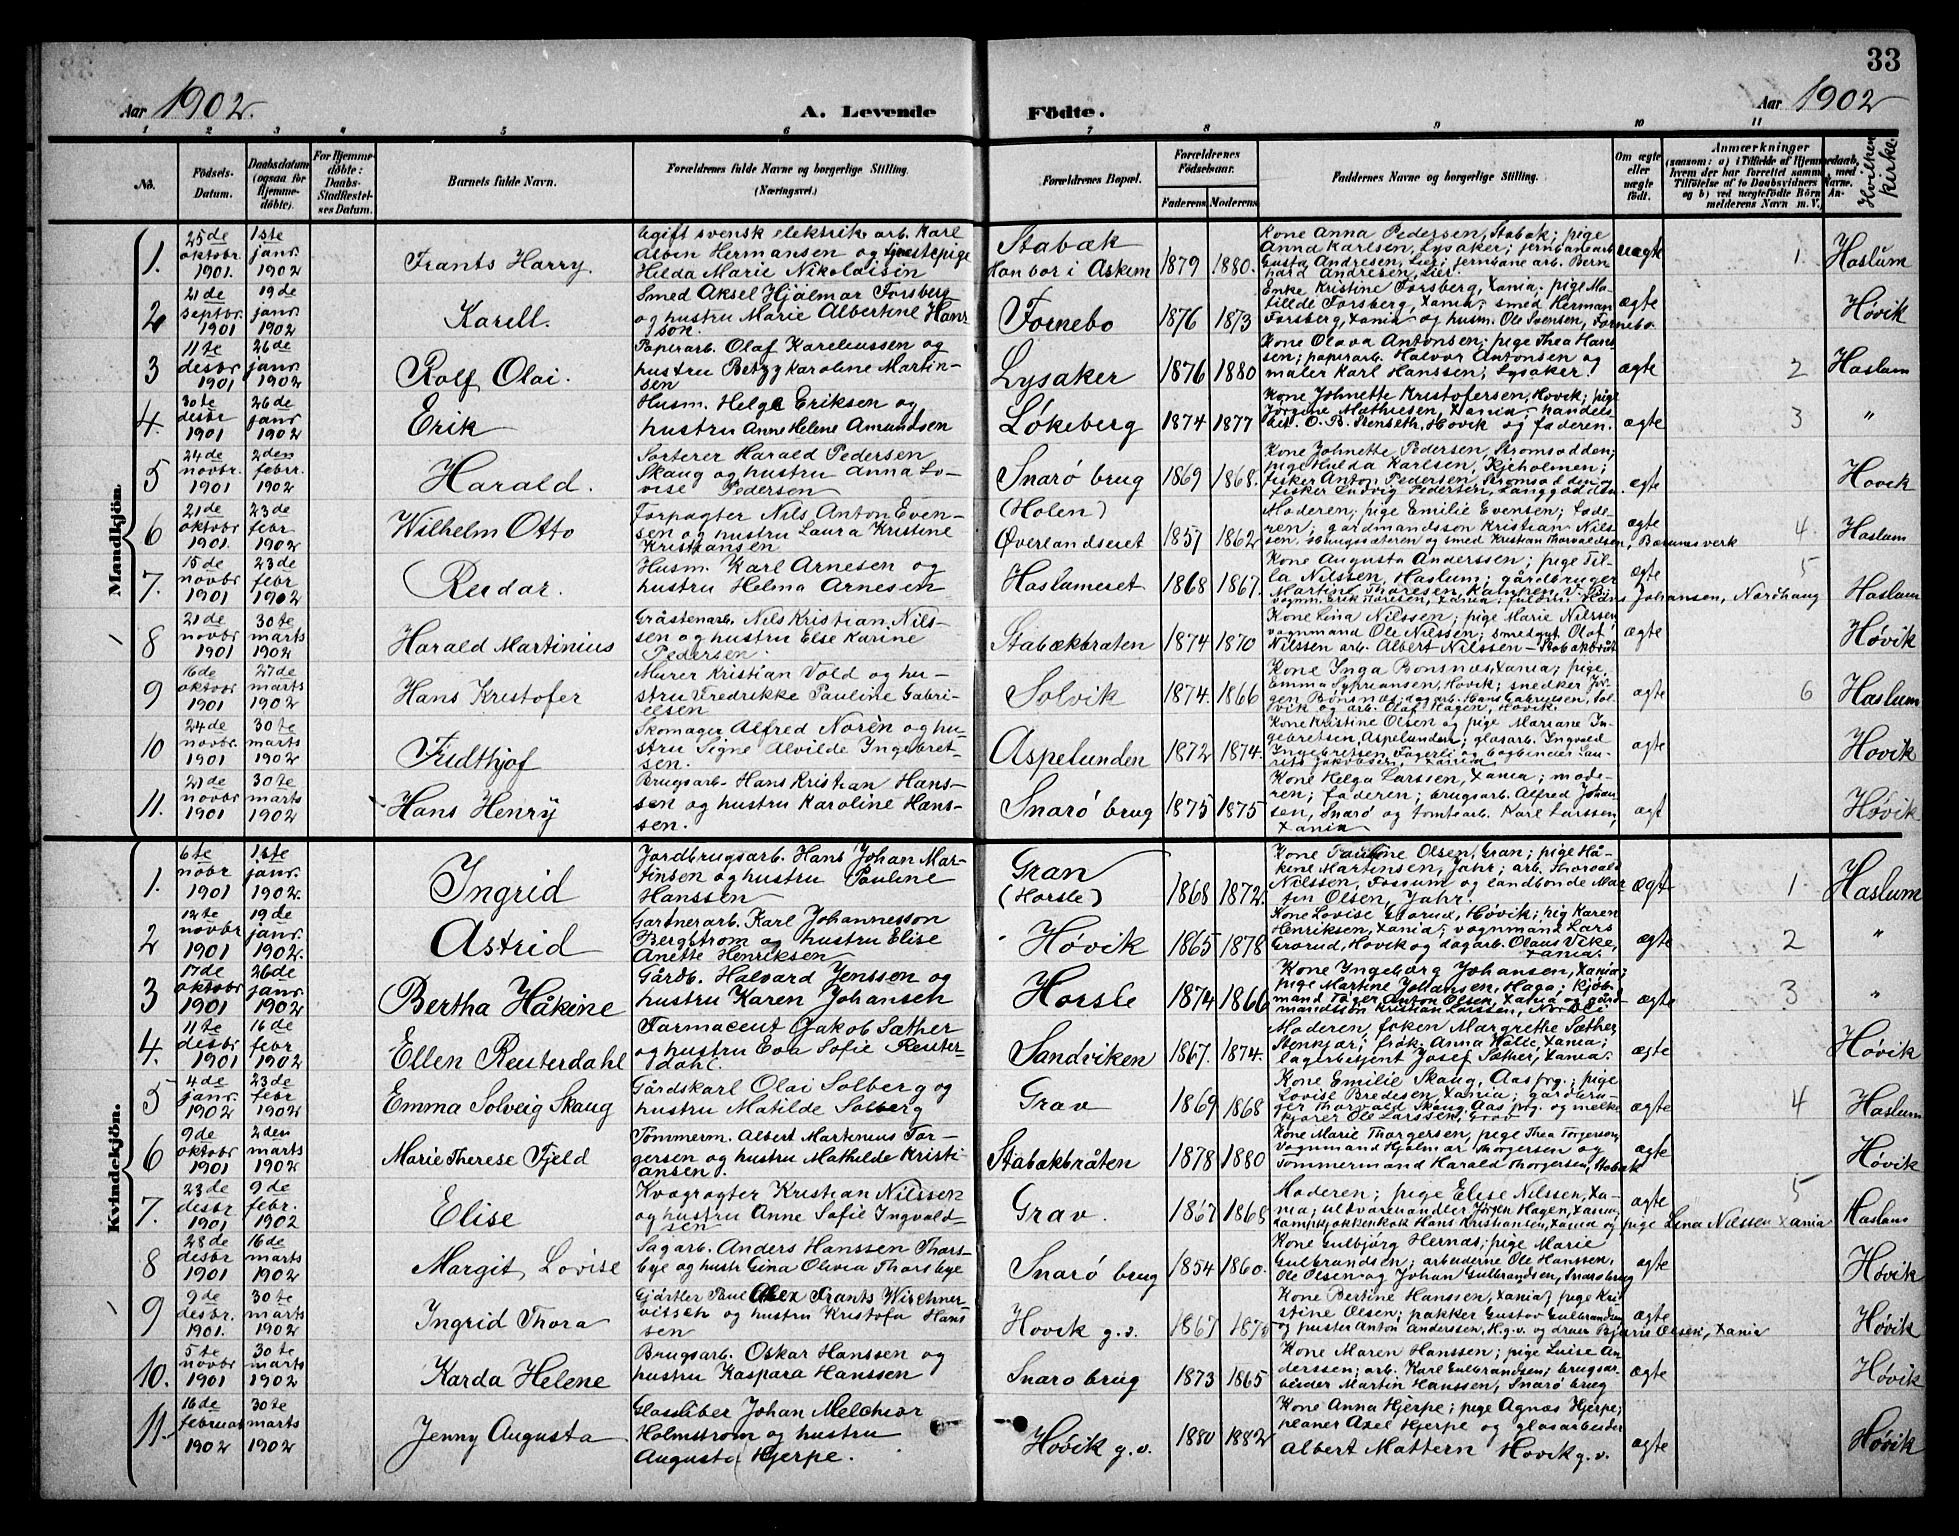 33
Aar 1902. A. Levende Födte. Aar 1902
1 2 3 4 5 6 7 8 9 10 11
No. Födsels-Datum. Daabsdatum (ogsaa for Hjemmedöbte). For Hjemmedöbte: Daabs-Stadfæstelses Datum. Barnets fulde Navn. Forældrenes fulde Navne og borgerlige Stilling. (Næringsvei.) Forældrenes Bopæl. Forældrenes Födselsaar. Faderens Moderens Faddernes Navne og borgerlige Stilling. Om ægte eller uægte födt. Anmærkninger Hvilken Kirke.
Mandkjön.
1. 25de oktobr. 1901. 1ste janr. 1902 Frants Harry Ugift svensk elektrik. arb. Karl Albin Hermansen og tjenestepige Hilda Marie Nikolaisen Stabæk Han bor i Askim 1879 1880. Kone Anna Pedersen, Stabæk; pige Anna Karlsen, Lysaker; jernbanearb. Gusta Andresen, Lier; jernbane arb. Bernhard Andresen, Lier. uægte 1. Haslum
2 21de septbr. 1901 19de janr. 1902 Karell. Smed Aksel Hjalmar Forsberg og hustru Marie Albertine Hansson. Fornebo 1876 1873 Enke Kristine Forsberg, Xania; pige Matillde Forsberg, Xania; smed Herman Forsberg, Xania og husm. Ole Svensen, Fornebo. ægte Høvik
3 11te desbr 1901 26de janr. 1902 Rolf Olai. Papirarb. Olaf Kareliussen og hustru Betzy Karoline Martinsen Lysaker 1876 1880 Kone Olava Antonsen; pige Thea Hanssen; papirarb. Halvor Antonsen og maler Karl Hanssen, Lysaker. ægte 2 Haslum
4. 30te desbr 1901 26de janr. 1902 Erik Husm. Helge Eriksen og hustru Anne Helene Amundsen Løkeberg 1874 1877 Kone Johnette Kristofersen, Høvik; pige Jørgine Mathiesen, Xania; handelsbet. O. B. Stenseth, Høvik og faderen. ægte 3 "
5 24de novbr. 1901 2den febrr. 1902 Harald. Sorterer Harald Pedersen Skaug og hustru Anna Lovise Pedersen Snarø brug (Holen) 1869 1868. Kone Johnette Pedersen, Strømsodden; pige Hulda Karlsen, Kjeholmen; fisker Anton Pedersen, Strømsodden og fisker Ludvig Pedersen, Langodden. ægte Høvik
6 21de oktobr 1901. 23de febr 1902 Wilhelm Otto Forpagter Nils Anton Evensen og hustru Laura Kristine Kristiansen Øverlandseiet 1857 1862 Moderen; pige Emilie Evensen; faderen; gårdmandssøn Kristian Nilssen, Haugsæteren og smed Kristian Thorvaldsen, Bærumsverk ægte 4 Haslum
7. 15de novbr 1901 23de febr 1902 Reidar. Husm. Karl Arnesen og hustru Helma Arnesen Haslumeiet 1868 1867. Kone Augusta Anderssen; pige Tilla Nilssen, Haslum; gårdbruger Hans Johansen, Nordhaug ægte 5 Haslum
8 21de novbr 1901 30te marts 1902 Harald Martinius Gråstenarb. Nils Kristian Nilssen og hustru Else Karine Pedersen. Stabækbråten 1874 1870 Kone Lina Nilssen; pige Marie Nilssen; vognmand Ole Nilssen; smedgut Olaf Nilssen arb. Albert Nilssen - Stabækbråt ægte Høvik
9 16de oktobr 1901 27de marts 1902 Hans Kristofer Murer Kristian Vold og hustru Fredrikke Pauline Gabrielsen Solvik 1874. 1866 Kone Inga Bonsnæs, Xania; pige Emma Syhrensen, Høvik; snedker Jørgen Bonsnæs; dagarb. Hans Gabrielsen, Solvik og arb. Olaf Hagen, Høvik. ægte 6 Haslum
10 24de novbr. 1901 30te marts 1902 Fridthjof Skomager Alfred Norèn og hustru Signe Alvilde Ingebretsen. Aspelunden 1872 1874. Kone Kristine Olsen og pige Mariane Ingebretsen, Aspelunden; glasarb. Ingvald Ingebretsen, Fagerli og bogbinder Laurits Jakobsen, Xania ægte Høvik
11. 21de novbr 1901 30te marts 1902 Hans Henry Brugsarb. Hans Kristian Hanssen og hustru Karoline Hanssen. Snarø brug 1875 1875 Kone Helga Larssen, Xania; moderen; faderen; brugsarb. Alfred Johansen, Snarø og tomtearb. Karl Larssen, Xania ægt Høvik
Kvindekjön.
1. 6te novbr 1901 1ste janr. 1902. Ingrid Jordbrugsarb. Hans Johan Martinsen og hustru Pauline Hanssen Gran (Horsle) 1868 1872. Kone Pauline Olsen, Gran; pige Håkine Martinsen, Jahr; arb. Thorvald Nilssen, Fossum og landbonde Martin Olsen, Jahr. ægt 1. Haslum
2 12te novbr 1901 19de janr. 1902. Astrid Gartnerarb. Karl Johannesson Bergstrøm og hustru Elise Anette Henriksen Høvik 1865 1878 Kone Lovise Grorud, Høvik; pig Karen Henriksen, Xania; vognmand Lars Grorud, Høvik og dagarb. Olaus Vike, Xania. ægte 2 "
3 17de oktobr 1901 26de janr 1902 Bertha Håkine Gårdb. Halvard Jenssen og hustru Karen Johansen Horsle 1874 1866 Kone Ingebørg Johansen, Xania; pige Martine Johansen, Haga; kjøbmand Anton Olsen, Xania og gårdmandssøn Kristian Larssen, Nordli ægte 3 "
4. 11te desbr 1901 16de febr 1902 Ellen Reuterdahl Farmaceut Jakob Sæther og hustru Eva Sofie Reuterdahl. Sandviken 1867. 1874. Moderen, frøken Margrethe Sæther Stenkjær; frøk. Anna Halle, Xania; lagerbetjent Josef Sæther, Xania. ægte Høvik
5 4de janr. 1902 23de febr 1902 Emma Solveig Skaug Gårdskarl Olai Solberg og hustru Matilde Solberg Grav 1869 1868 Kone Emilie Skaug, Aas prg.; pige Lovise Bredesen, Xania; gårdbruger Thorvald Skaug, Aas prg. og melkekjører Ole Larssen, Grav ægte 4 Haslum
6 9de oktobr 1901 2den marts 1902 Marie Therese Fjeld Tømmerm. Albert Martinius Torgersen og hustru Mathilde Kristiansen. Stabækbråten 1878 1880 Kone Marie Thorgersen, pige Thea Torgersen, Vognmand Hjalmar Thorgersen og Tømmermand Harald Thorgersen, Stabæk ægte Høvik
7. 23de desbr 1901 9de febr. 1902 Elise Kvægrøgter Kristian Nilssen og hustru Anne Sofie Ingvaldsen Grav. 1867 1868 Moderen; pige Elise Nilssen, Xania; uldvarehandler Jørgen Hagen, Xania; Dampkjøkkenkok Hans Kristiansen, Xania og pige Lina Nilssen Xania ægte 5 Haslum
8 28de desbr 1901 16de marts 1902 Margit Lovise Sagarb. Anders Hanssen Thorsbye og hustr Gina Olivia Thorsbye Snarø brug 1854 1860. Kone Gulbjørg Hernæs; pige Marie Gulbrandsen; arbeiderne Ole Hanssen, Ole Olsen og Johan Gulbrandsen, Snarø brug ægte Høvik
9 9de desbr. 1901. 30te marts 1902 Ingrid Thora Gjørtler Paul Alex Frants Wischnevitsch og hustru Kristofa Hanssen Høvik g.v. 1867 1875 Kone Bertine Hanssen, Xania; pige Kristine Olsen; pakker Gustav Gulbrandsen og puster Anton Anderssen, H.g.v. og dreier Bjarne Olsen, Xania ægte Høvik
10. 5te novbr 1901 30te marts 1902 Karda Helene Brugsarb. Oskar Hanssen og hustru Kaspara Hanssen Snarø brug 1873 1865 Kone Maren Hanssen; pige Luise Anderssen; arb. Karl Gulbrandsen; brugsarbeider Martin Hanssen, Snarø brug ægte Høvik
11. 16de februar 1902 30te marts 1902 Jenny Augusta Glassliber Johan Melchior Holmstrøm og hustru Augusta Hjerpe. Høvik g.v. 1880 1882 Kone Anna Hjerpe; pige Agnæs Hjerpe; planer Axel Hjerpe og glasarbeider Albert Mattern Høvik g.v. ægte Høvik